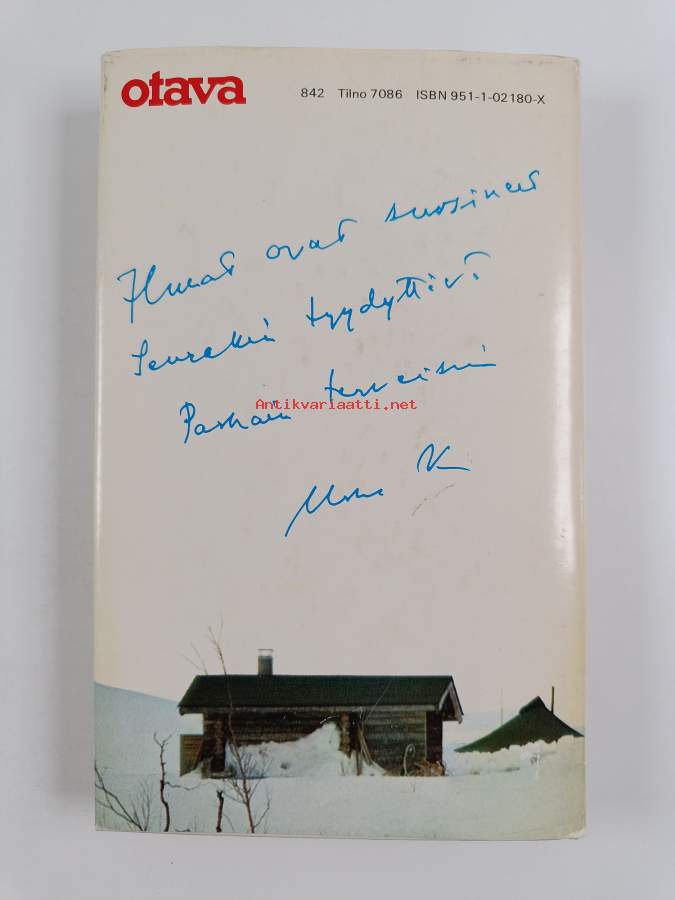 otava
842 Tilno 7086 ISBN 951-1-02180-X
Ilmat ovat suosineet
Seurakin tyydyttivä
Parhain terveisin
Antikvariaatti.net